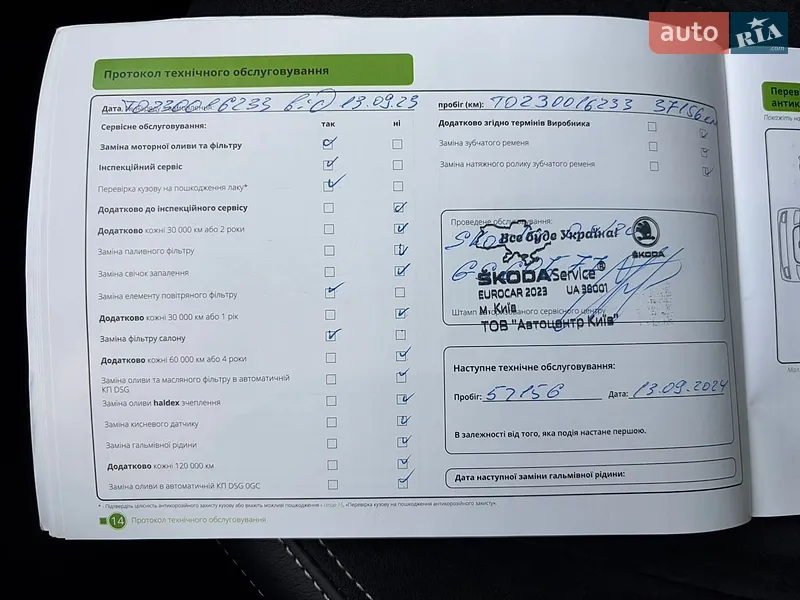 auto RIA
.com
Протокол технічного обслуговування
Дата. TO230016233 від 13.09.23
пробіг (км): TO230016233 37156км
Сервісне обслуговування: так ні
Заміна моторної оливи та фільтру
Інспекційний сервіс
Перевірка кузову на пошкодження лаку*
Додатково до інспекційного сервісу
Додатково кожні 30 000 км або 2 роки
Заміна паливного фільтру
Заміна свічок запалення
Заміна елементу повітряного фільтру
Додатково кожні 30 000 км або 1 рік
Заміна фільтру салону
Додатково кожні 60 000 км або 4 роки
Заміна оливи та масляного фільтру в автоматичній
КП DSG
Заміна оливи haldex зчеплення
Заміна кисневого датчику
Заміна гальмівної рідини
Додатково кожні 120 000 км
Заміна оливи в автоматичній КП DSG 0GC
Додатково згідно термінів Виробника
Заміна зубчатого ременя
Заміна натяжного ролику зубчатого ременя
Проведене обслуговування:
Все буде Україна!
ŠKODA
ŠKODA Service
EUROCAR 2023 UA 39001
м. Київ
Штамп авторизованого сервісного центру
ТОВ "Автоцентр Київ"
Наступне технічне обслуговування:
Пробіг: 57156 Дата: 13.09.2024
В залежності від того, яка подія настане першою.
Дата наступної заміни гальмівної рідини:
* - Підтвердіть цілісність антикорозійного захисту кузову або вкажіть можливі пошкодження «Перевірка кузову на пошкодження антикорозійного захисту».
14 Протокол технічного обслуговування
Перев
антик